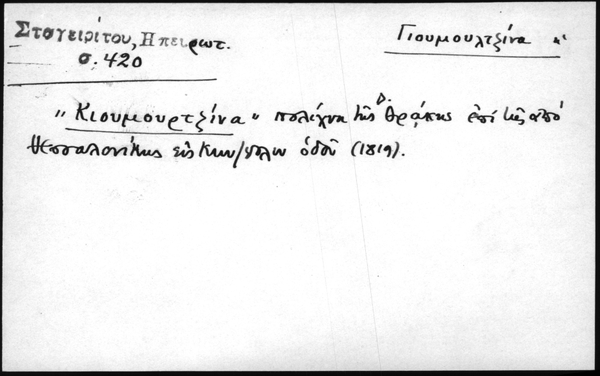 Σταγειρίτου, Ηπειρωτ.
σ. 420
Γιουμουλτζίνα
"Κιουμουρτζίνα" πολίχνη τῆς Δ. Θράκης ἐπὶ τῆς ἀπὸ
Θεσσαλονίκης εἰς Κων/πολιν ὁδοῦ (1819).